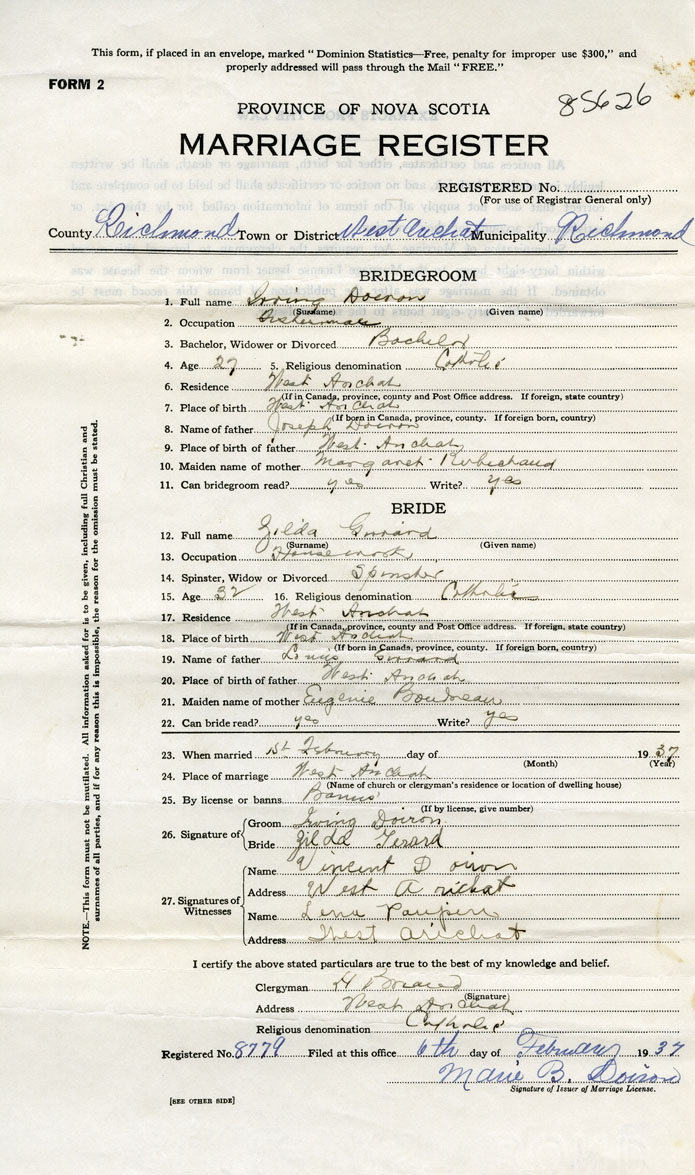 This form, if placed in an envelope, marked " Dominion Statistics—Free, penalty for improper use $300," and
properly addressed will pass through the Mail " FREE."
FORM 2
85626
PROVINCE OF NOVA SCOTIA
MARRIAGE REGISTER
REGISTERED No.
(For use of Registrar General only)
County Richmond Town or District West Arichat Municipality Richmond
BRIDEGROOM
1. Full name Irving Doiron
(Surname) (Given name)
2. Occupation Fisherman
3. Bachelor, Widower or Divorced Bachelor
4. Age 27 5. Religious denomination Catholic
6. Residence West Arichat
(If in Canada, province, county and Post Office address. If foreign, state country)
7. Place of birth West Arichat
(If born in Canada, province, county. If foreign born, country)
8. Name of father Joseph Doiron
9. Place of birth of father West Arichat
10. Maiden name of mother Margaret Robichaud
11. Can bridegroom read? yes Write? yes
BRIDE
12. Full name Zilda
(Surname) (Given name)
13. Occupation Housework
14. Spinster, Widow or Divorced Spinster
15. Age 32 16. Religious denomination Catholic
17. Residence West Arichat
(If in Canada, province, county and Post Office address. If foreign, state country)
18. Place of birth West Arichat
(If born in Canada, province, county. If foreign born, country)
19. Name of father Louis
20. Place of birth of father West Arichat
21. Maiden name of mother Eugenie Boudreau
22. Can bride read? yes Write? yes
23. When married 1st February day of 19 37
(Month) (Year)
24. Place of marriage West Arichat
(Name of church or clergyman's residence or location of dwelling house)
25. By license or banns Banns
(If by license, give number)
26. Signature of Groom Irving Doiron
Bride Zilda Gerard
27. Signatures of Witnesses Name Vincent Doiron
Address West Arichat
Name Lena
Address West Arichat
I certify the above stated particulars are true to the best of my knowledge and belief.
Clergyman
(Signature)
Address West Arichat
Religious denomination Catholic
Registered No. 8779 Filed at this office 6th day of February 19 37
Marie B. Doiron
Signature of Issuer of Marriage License.
[SEE OTHER SIDE]
NOTE.—This form must not be mutilated. All information asked for is to be given, including full Christian and
surnames of all parties, and if for any reason this is impossible, the reason for the omission must be stated.